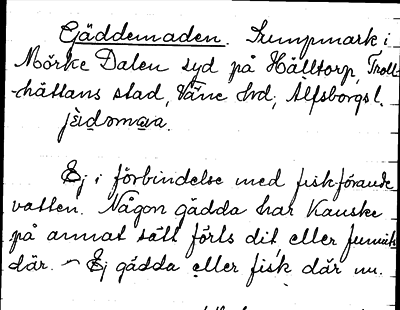 Gäddemaden. Sumpmark i
Mörke Dalen syd på Hälltorp, Troll-
hättans stad, Väne hd, Älfsborgs l.
jèidɔmɑva.
Ej i förbindelse med fiskförande
vatten. Någon gädda har kanske
på annat sätt förts dit eller funnits
där. – Ej gädda eller fisk där nu.